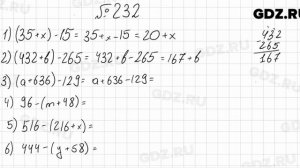 № 232
GDZ.RU
1) (35+x)-15 = 35+x-15 = 20+x
2) (432+b)-265 = 432+b-265 = 167+b
3) (a+636)-129 = a+636-129 =
4) 96-(m+48) =
5) 516-(216+x) =
6) 444-(y+58) =
432
265
167
GDZ.RU